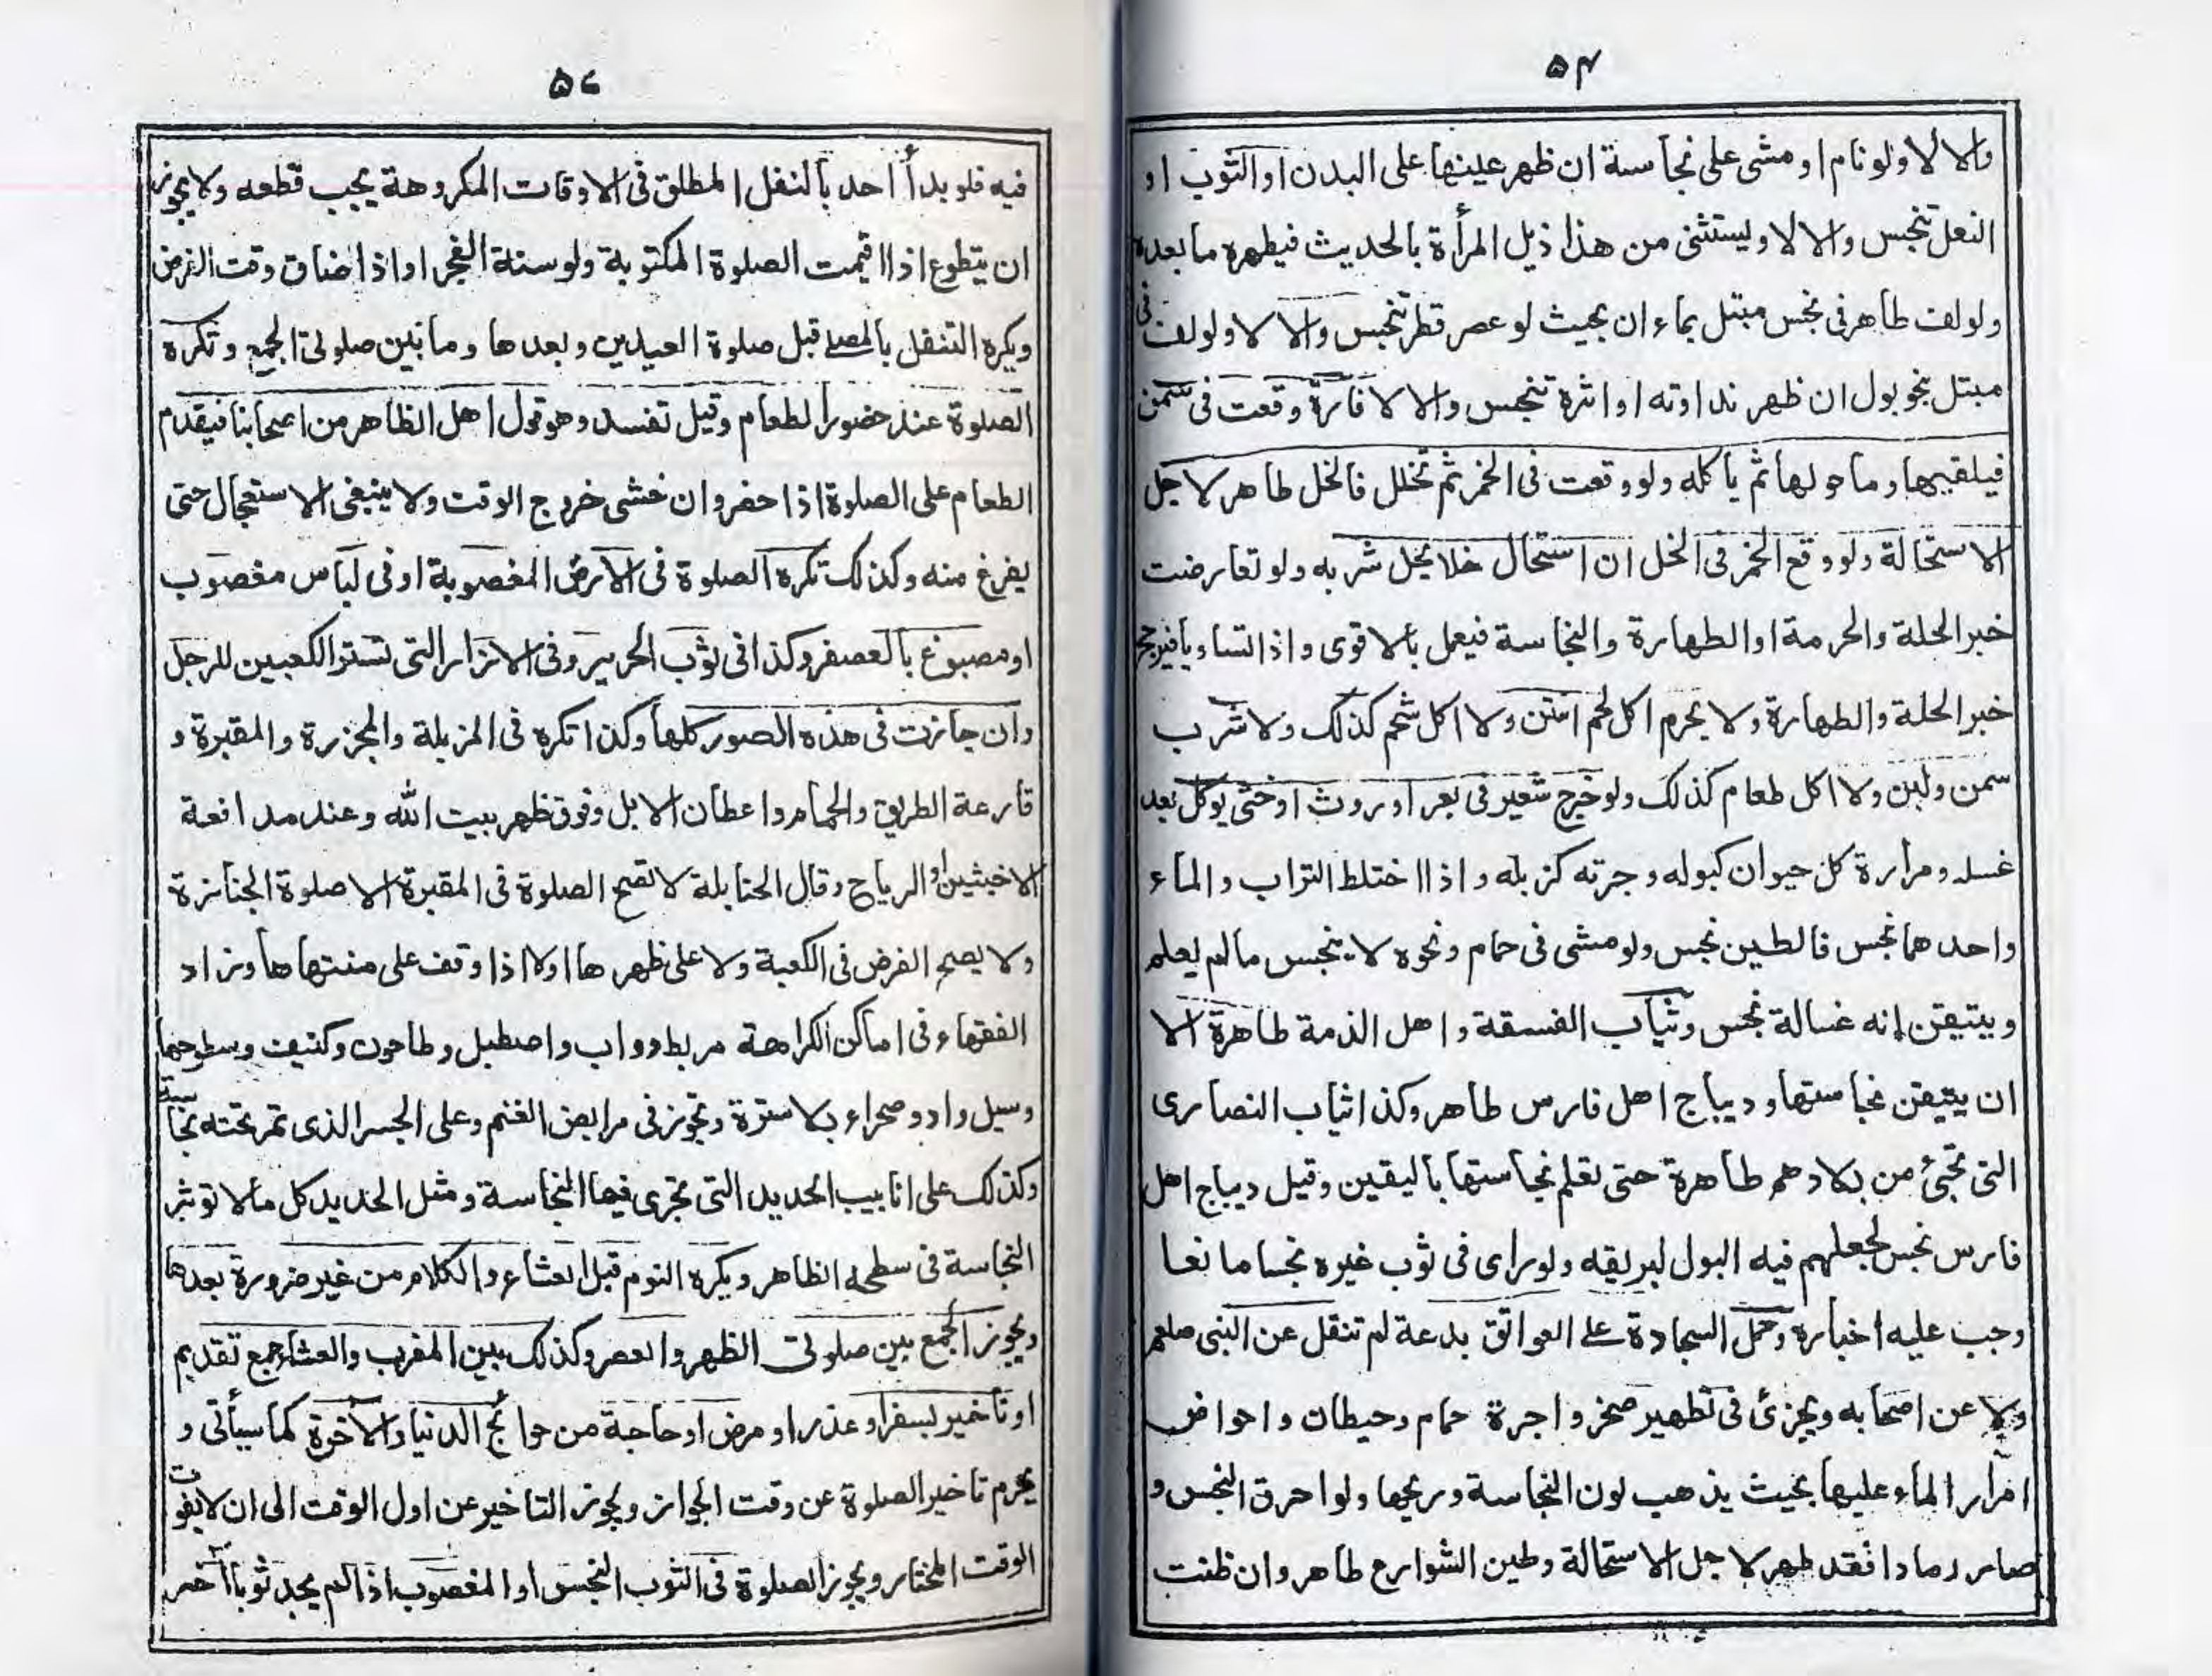 ۵۴
والا لا ولو نام او مشى على نجاسة ان ظهر عينها على البدن او الثوب او
النعل تنجس والا لا وليستثنى من هذا ذيل المرأة بالحديث فيطهره ما بعده
ولو لف طاهر فى نجس مبتل بماء ان بحيث لو عصر قطر تنجس والا لا ولو لف فى
مبتل بنحو بول ان ظهر نداوته او اثره تنجس والا لا فارة وقعت فى سمن
فيلقيها وما حولها ثم يأكله ولو وقعت فى الخمر ثم تخلل فالخل طاهر لاجل
الاستحالة ولو وقع الخمر فى الخل ان استحال خلا يحل شربه ولو تعارضت
خبر الحلة والحرمة او الطهارة والنجاسة فيعمل بالاقوى واذا تساويا فيرجح
خبر الحلة والطهارة ولا يحرم اكل لحم انتن ولا اكل شحم كذلك ولا شرب
سمن ولبن ولا اكل طعام كذلك ولو خرج شعير فى بعر او روث او خثى يوكل بعد
غسله ومرارة كل حيوان كبوله وجرته كزبله واذا اختلط التراب والماء
واحدهما نجس فالطين نجس ولو مشى فى حمام ونحوه لا ينجس ما لم يعلم
ويتيقن انه غسالة نجس وثياب الفسقة واهل الذمة طاهرة الا
ان يتيقن نجاستها وديباج اهل فارس طاهر وكذا ثياب النصارى
التى تجئ من بلادهم طاهرة حتى تعلم نجاستها باليقين وقيل ديباج اهل
فارس نجس لجعلهم فيه البول لبريقه ولو راى فى ثوب غيره نجسا مانعا
وجب عليه اخباره وحمل السجادة على العواتق بدعة لم تنقل عن النبى صلعم
ولا عن اصحابه ويجزئ فى تطهير صخر واجرة حمام وحيطان واحواض
امرار الماء عليها بحيث يذهب لون النجاسة وريحها ولو احرق النجس و
صار رمادا فقد طهر لاجل الاستحالة وطين الشوارع طاهر وان ظنت
۵۶
فيه فلو بدأ احد بالنفل المطلق فى الاوقات المكروهة يجب قطعه ولا يجوز
ان يتطوع اذا اقيمت الصلوة المكتوبة ولو سنة الفجر او اذا ضاق وقت الفرض
ويكره التنفل بالمصلى قبل صلوة العيدين وبعدها وما بين صلوتى الجمع وتكره
الصلوة عند حضور الطعام وقيل تفسد وهو قول اهل الظاهر من اصحابنا فيقدم
الطعام على الصلوة اذا حضر وان خشى خروج الوقت ولا ينبغى الاستعجال حتى
يفرغ منه وكذلك تكره الصلوة فى الارض المغصوبة او فى لباس مغصوب
او مصبوغ بالعصفر وكذا فى ثوب الحرير وفى الازار التى تستر الكعبين للرجل
وان جازت فى هذه الصور كلها وكذا تكره فى المزبلة والمجزرة والمقبرة و
قارعة الطريق والحمام واعطان الابل وفوق ظهر بيت الله وعند مدافعة
الاخبثين او الرياح وقال الحنابلة لا تصح الصلوة فى المقبرة الا صلوة الجنازة
ولا يصح الفرض فى الكعبة ولا على ظهرها الا اذا وقف على منتهاها وزاد
الفقهاء فى اماكن الكراهة مربط دواب واصطبل وطاحون وكنيف وسطوحها
وسيل واد وصحراء بلا سترة وتجوز فى مرابض الغنم وعلى الجسر الذى تمر تحته نجاسة
وكذلك على انابيب الحديد التى تجرى فيها النجاسة ومثل الحديد كل ما لا توثر
النجاسة فى سطحه الظاهر ويكره النوم قبل العشاء والكلام من غير ضرورة بعدها
ويجوز الجمع بين صلوتى الظهر والعصر وكذلك بين المغرب والعشاء جمع تقديم
او تاخير لسفر او عذر او مرض او حاجة من حوائج الدنيا والآخرة كما سيأتى و
يحرم تاخير الصلوة عن وقت الجواز ويجوز التاخير عن اول الوقت الى ان لا يفوت
الوقت المختار ويجوز الصلوة فى الثوب النجس او المغصوب اذا لم يجد ثوبا آخر